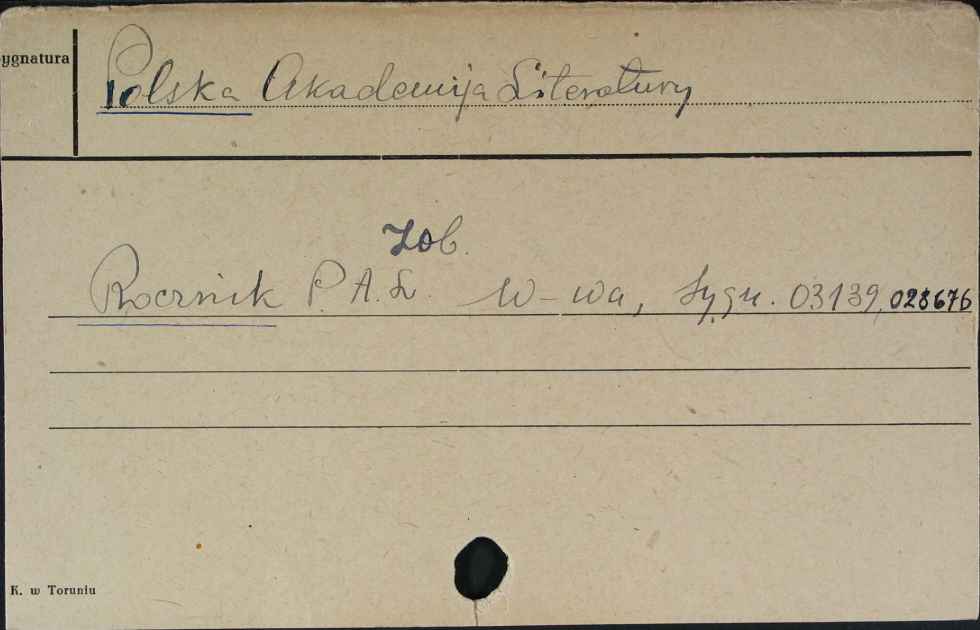 ygnatura
Polska Akademija Literatury
Zob.
Rocznik P.A.L. W-wa, Sygn. 03139, 028676
K. w Toruniu